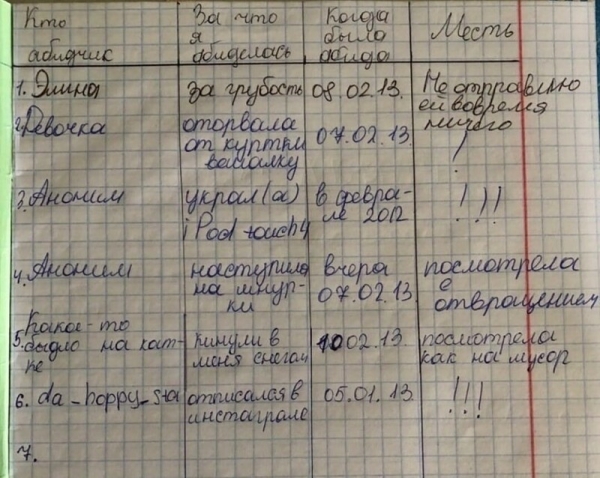 Кто абидчик | За что я обиделась | Когда была абида | Месть
1. Элина | за грубость | 08.02.13. | Не отправлю ей вовремя ничего
2. Девочка | оторвала от куртки висюлку | 07.02.13. | !
3. Аноним | украл(а) iPod touch 4 | в феврале 2012 | !!!
4. Аноним | наступила на шнурки | вчера 07.02.13 | посмотрела с отвращением
5. Какое-то быдло на катке | кинули в меня снегом | 10.02.13. | посмотрела как на мусор
6. da_hoppy_sta | отписался в инстаграме | 05.01.13 | !!!
7.